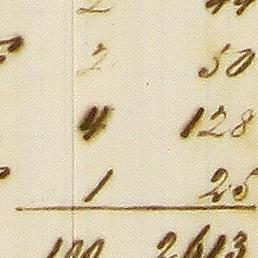 2
2 50
4 128
1 25
100 2613